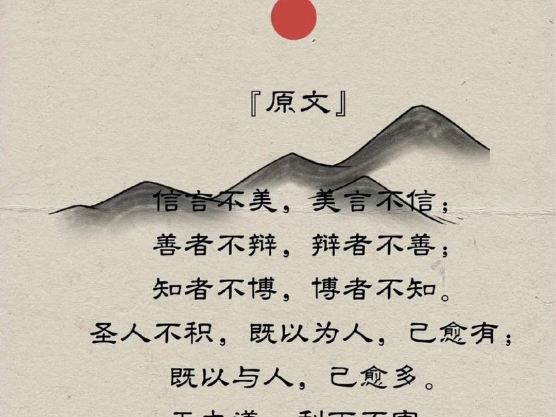 『原文』
信言不美，美言不信；
善者不辩，辩者不善；
知者不博，博者不知。
圣人不积，既以为人，己愈有；
既以与人，己愈多。